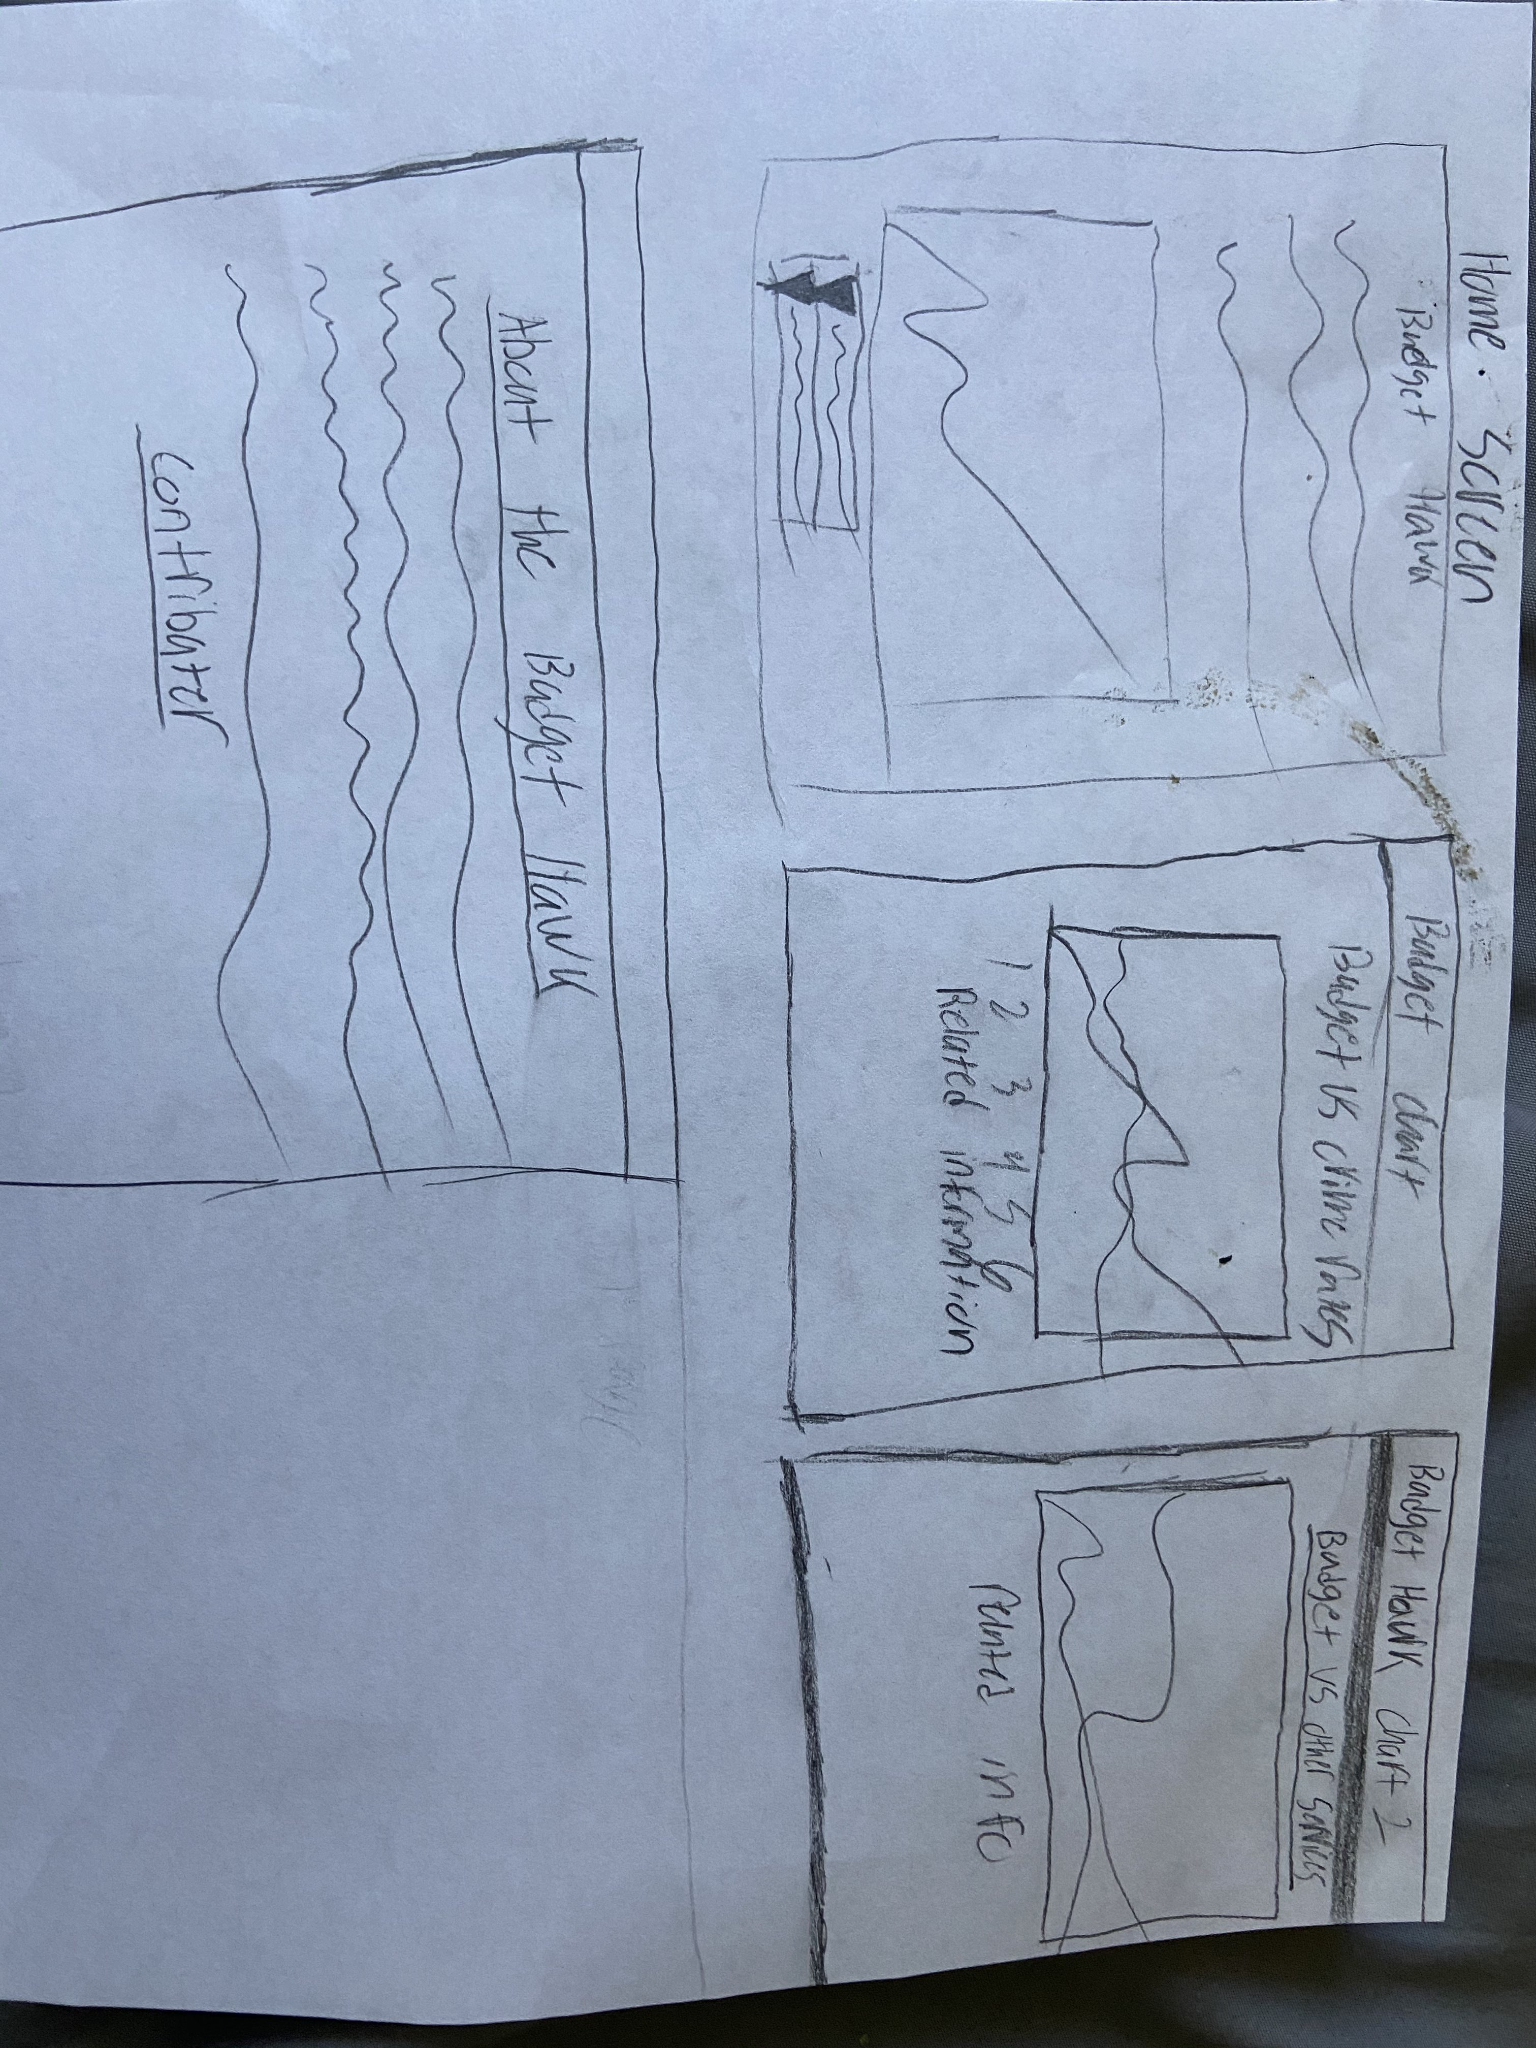 Home. Screen
Budget Hawk
Budget chart
Budget vs crime rates
1 2 3 4 5 6
Related information
Budget Hawk chart 2
Budget vs other services
info
About the Budget Hawk
contributer